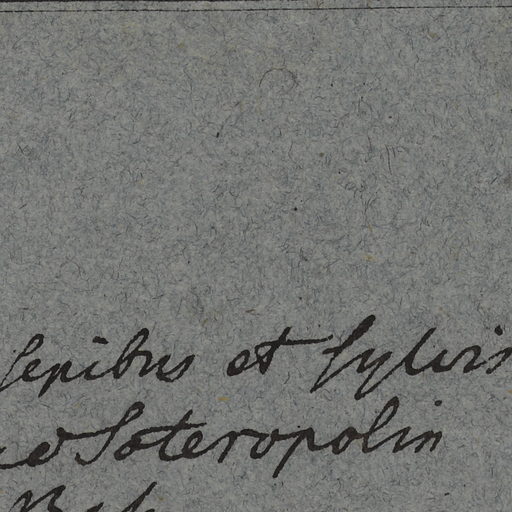 sepibus et sylvis
Soteropolin